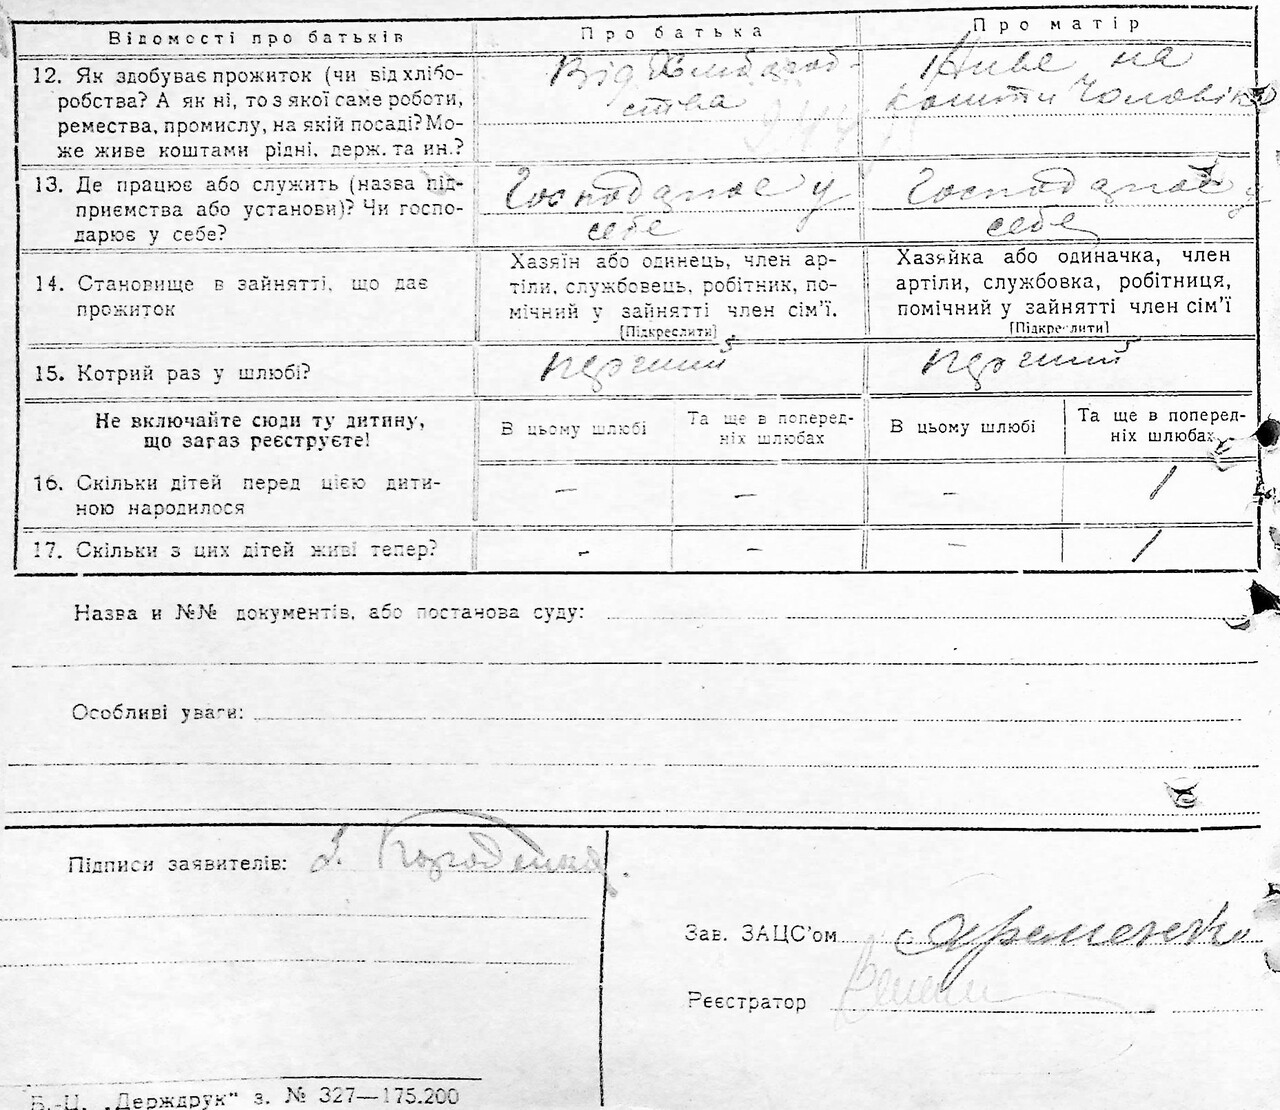 Відомості про батьків
Про батька
Про матір
12. Як здобуває прожиток (чи від хлібо-
робства? А як ні, то з якої саме роботи,
ремества, промислу, на якій посаді? Мо-
же живе коштами рідні, держ. та ин.?
Від Хлібороб-
ства
Живе на
кошти Чоловіка
13. Де працює або служить (назва під-
приємства або установи)? Чи госпо-
дарює у себе?
Господарює у
себе
Господарює у
себе
14. Становище в зайнятті, що дає
прожиток
Хазяїн або одинець, член ар-
тіли, службовець, робітник, по-
мічний у зайнятті член сім’ї.
[Підкреслити]
Хазяйка або одиначка, член
артіли, службовка, робітниця,
помічний у зайнятті член сім’ї
[Підкреслити]
15. Котрий раз у шлюбі?
перший
перший
Не включайте сюди ту дитину,
що зараз реєструєте!
В цьому шлюбі
Та ще в поперед-
ніх шлюбах
В цьому шлюбі
Та ще в поперед-
ніх шлюбах
16. Скільки дітей перед цією дити-
ною народилося
–
–
–
1
17. Скільки з цих дітей живі тепер?
–
–
–
1
Назва и №№ документів, або постанова суду:
Особливі уваги:
Підписи заявителів:
Зав. ЗАЦС’ом
Реєстратор
Б.-Ц. „Держдрук“ з. № 327—175.200